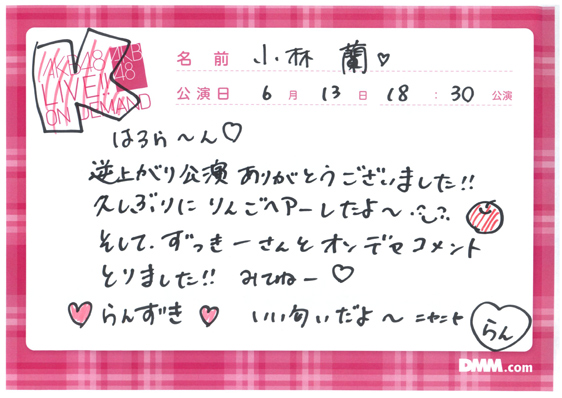 K
AKB48 LIVE!! ON DEMAND
AKB48
名前 小林 蘭♡
公演日 6月13日 18:30公演
はろら〜ん♡
逆上がり公演 ありがとうございました!!
久しぶりに りんごヘアーしたよ〜
そして、ずっきーさんと オンデマコメント
とりました!! みてねー ♡
♥ らんずき ♥ いい匂いだよ〜 ニヤニヤ
らん
DMM.com